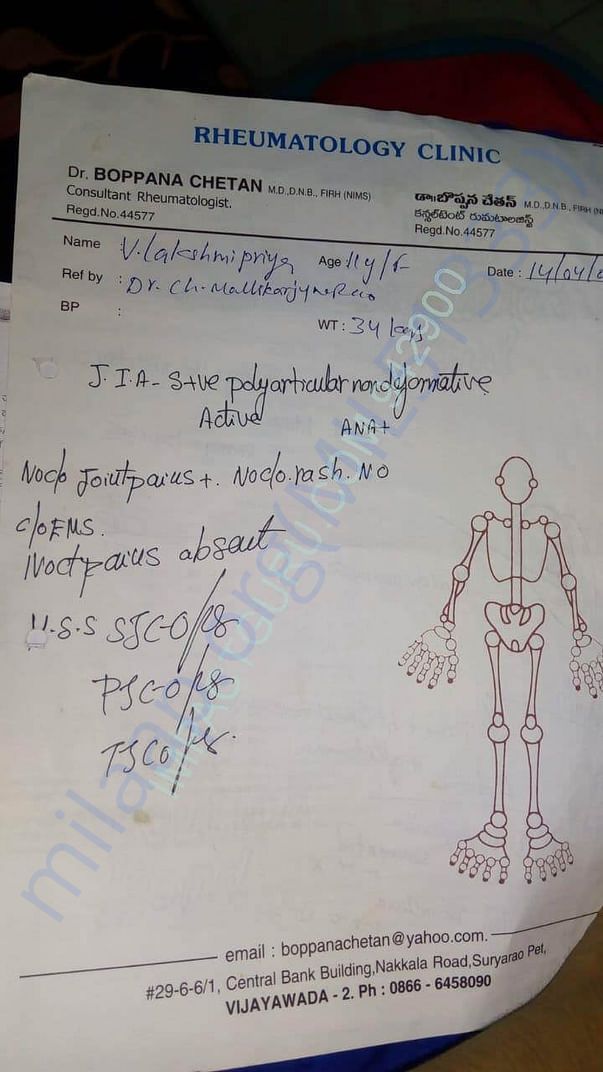 RHEUMATOLOGY CLINIC
Dr. BOPPANA CHETAN M.D.,D.N.B., FIRH (NIMS)
Consultant Rheumatologist.
Regd.No.44577
డా॥బొప్పన చేతన్ M.D.,D.N.B., FIRH
కన్సల్‌టెంట్ రుమటాలజిస్ట్
Regd.No.44577
Name V. Lakshmi priya Age 11 y/F Date : 14/04/
Ref by : Dr. Ch. Mallikarjuna Rao
BP :
WT : 34 kgs
J.I.A - S+ve polyarticular nondeformative
Active ANA+
No c/o Joint pains +. No c/o. rash. No
c/o EMS.
Noct pains absent
SJC-0/
PJC-0/
TJC0/
milaap.org
email : boppanachetan@yahoo.com.
#29-6-6/1, Central Bank Building,Nakkala Road,Suryarao Pet,
VIJAYAWADA - 2. Ph : 0866 - 6458090